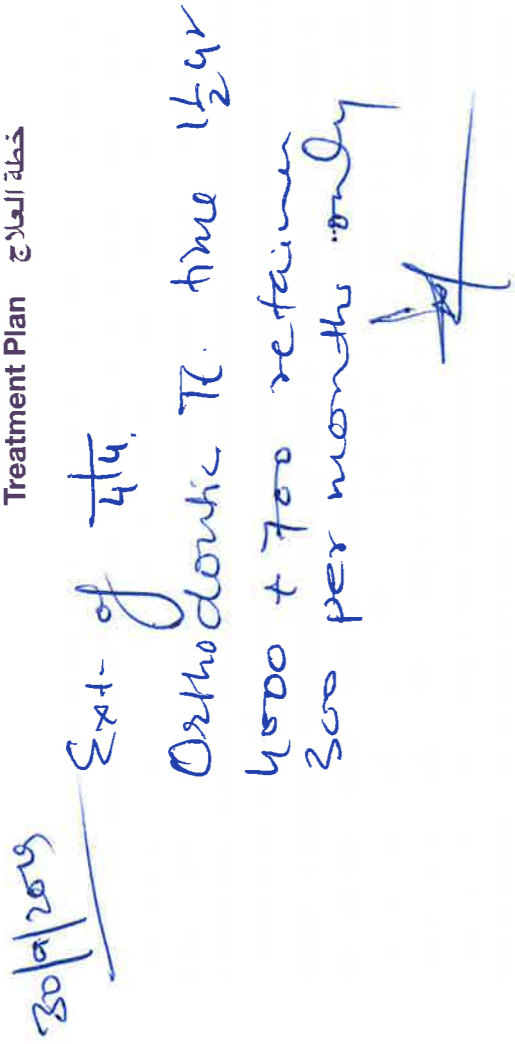 Treatment Plan خطة العلاج
Ext- of 4|4.
Orthodontic Tt. time 1½ yr
4000 + 700 retainer
300 per months only